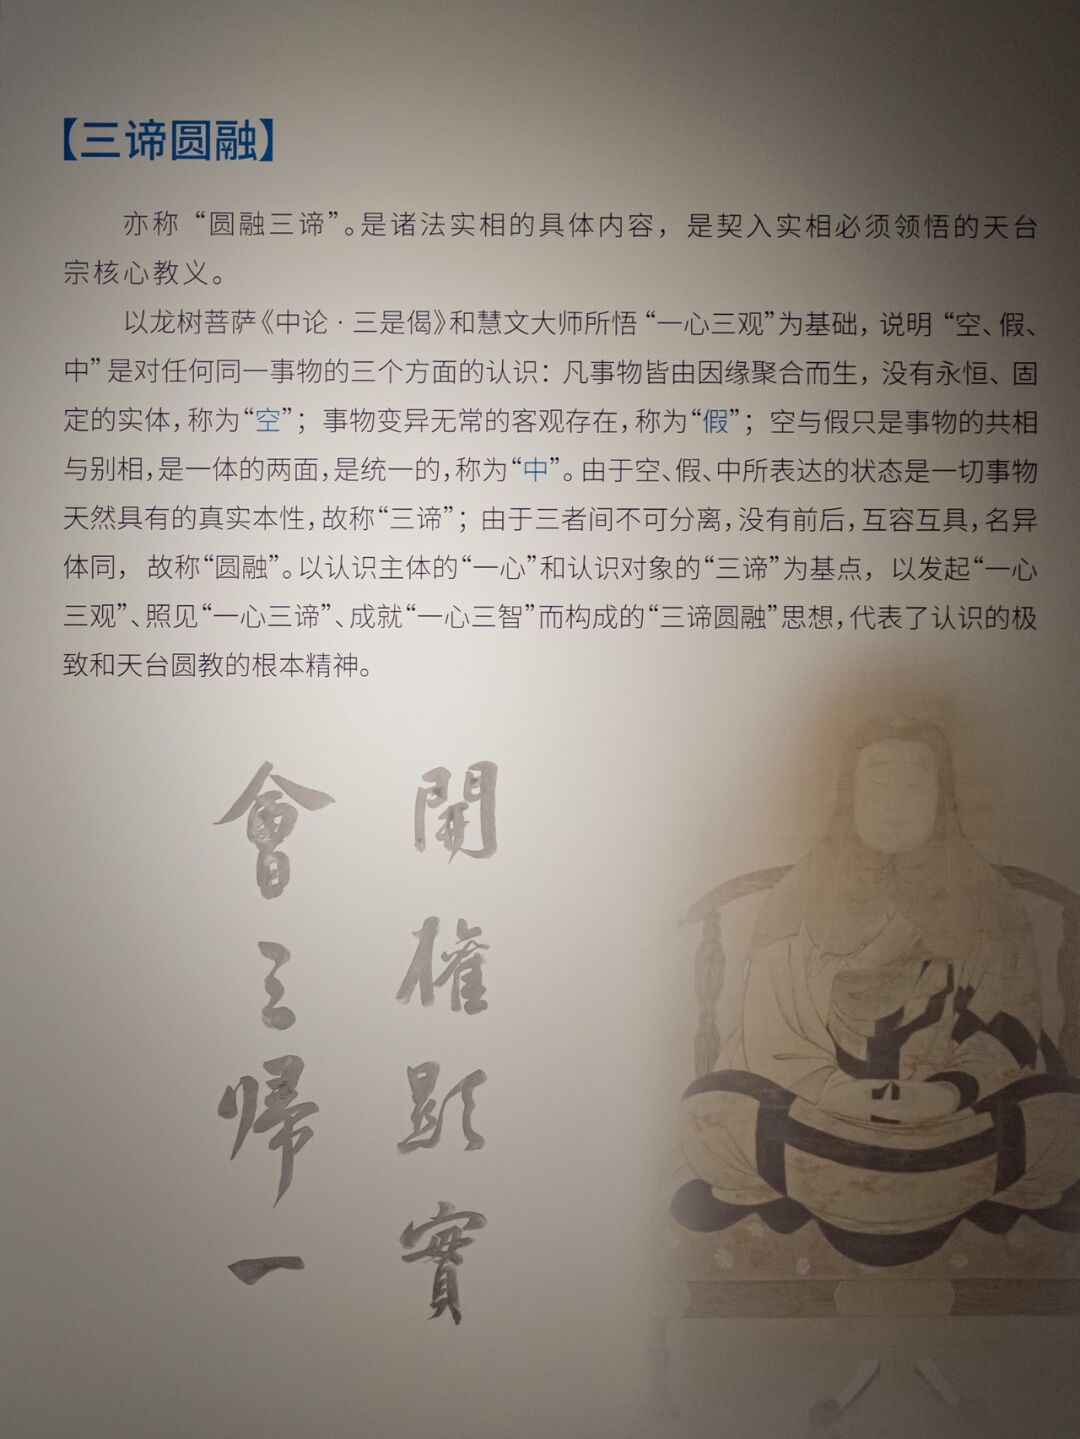 【三谛圆融】
亦称“圆融三谛”。是诸法实相的具体内容，是契入实相必须领悟的天台
宗核心教义。
以龙树菩萨《中论·三是偈》和慧文大师所悟“一心三观”为基础，说明“空、假、
中”是对任何同一事物的三个方面的认识：凡事物皆由因缘聚合而生，没有永恒、固
定的实体，称为“空”；事物变异无常的客观存在，称为“假”；空与假只是事物的共相
与别相，是一体的两面，是统一的，称为“中”。由于空、假、中所表达的状态是一切事物
天然具有的真实本性，故称“三谛”；由于三者间不可分离，没有前后，互容互具，名异
体同，故称“圆融”。以认识主体的“一心”和认识对象的“三谛”为基点，以发起“一心
三观”、照见“一心三谛”、成就“一心三智”而构成的“三谛圆融”思想，代表了认识的极
致和天台圆教的根本精神。
開權顯實
會三歸一